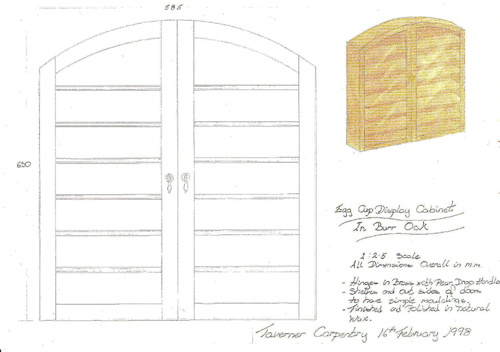 585
690
Egg Cup Display Cabinet
In Burr Oak
1:2.5 Scale
All Dimensions Overall in m.m.
- Hinges in Brass with Pear Drop Handle
- Shelves and out sides of doors
to have simple mouldings.
- Finished and Polished in Natural
Wax.
Taverner Carpentry 16th February 1998